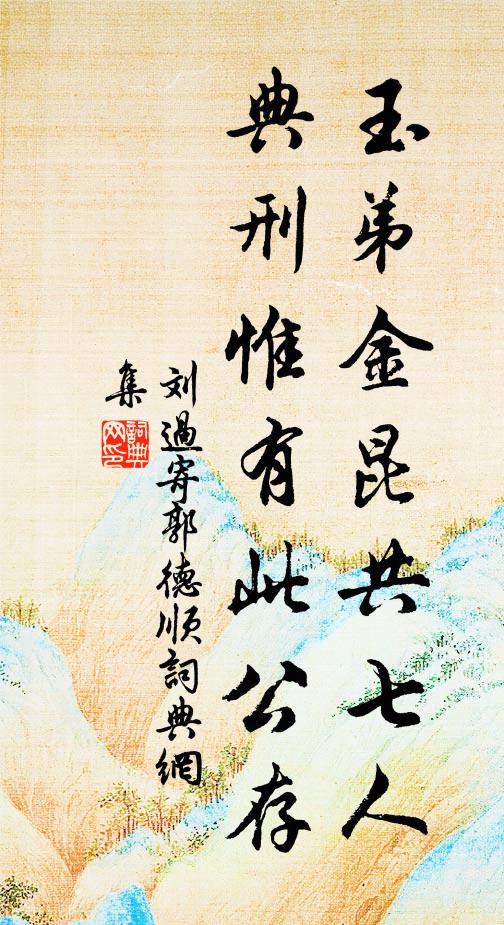 玉弟金昆共七人
典刑惟有此公存
刘過寄郭德順詞典網
集
詞典网印